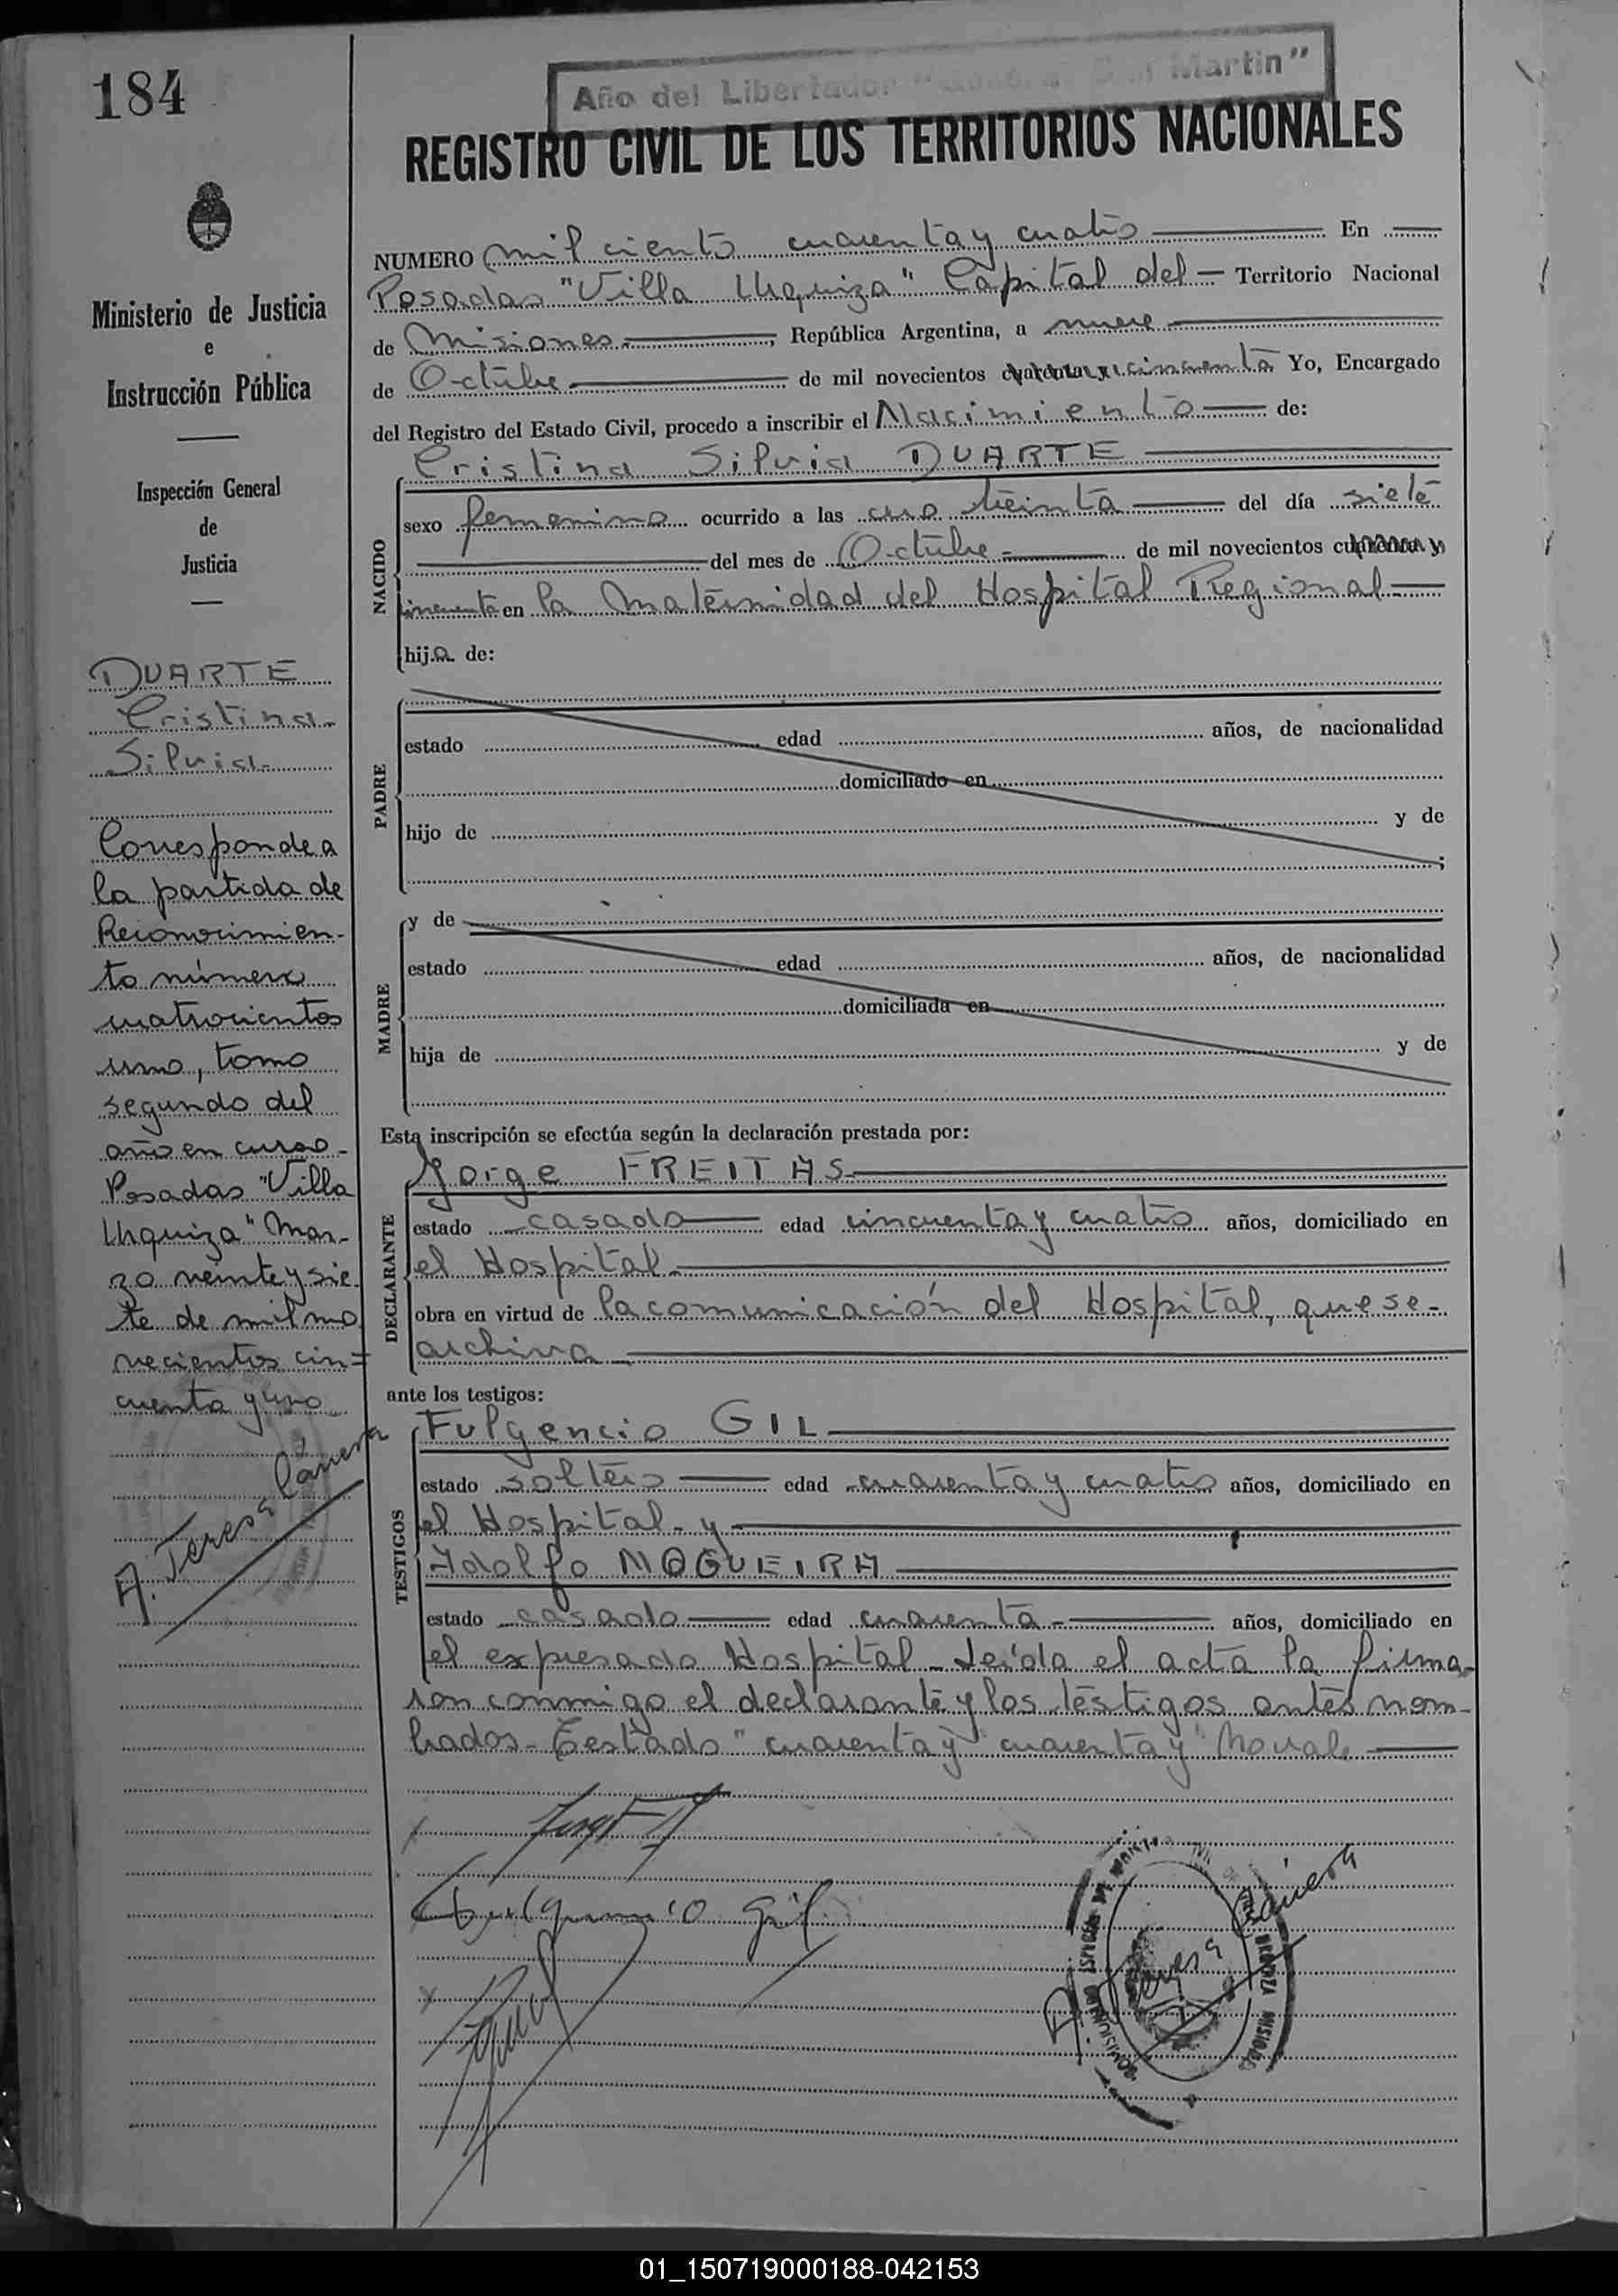 184
Año del Libertador "General San Martin"
REGISTRO CIVIL DE LOS TERRITORIOS NACIONALES
Ministerio de Justicia
e
Instrucción Pública
Inspección General
de
Justicia
DUARTE
Cristina
Silvia
Corresponde a
la partida de
Reconocimien-
to número
cuatrocientos
uno, tomo
segundo del
año en curso
Posadas "Villa
Urquiza" Mar-
zo veinte y sie
te de mil no
vecientos cin=
cuenta y uno
A. Teresa
NUMERO mil ciento cuarenta y cuatro En
Posadas "Villa Urquiza" Capital del Territorio Nacional
de Misiones, República Argentina, a nueve
de Octubre de mil novecientos cuarenta y cincuenta Yo, Encargado
del Registro del Estado Civil, procedo a inscribir el Nacimiento de:
Cristina Silvia DUARTE
NACIDO
sexo femenino ocurrido a las treinta del día siete
del mes de Octubre de mil novecientos cuarenta y
cincuenta en la Maternidad del Hospital Regional
hija de:
PADRE
estado edad años, de nacionalidad
domiciliado en
hijo de y de
;
MADRE
y de
estado edad años, de nacionalidad
domiciliada en
hija de y de
Esta inscripción se efectúa según la declaración prestada por:
DECLARANTE
Jorge FREITAS
estado casado edad cincuenta y cuatro años, domiciliado en
el Hospital
obra en virtud de la comunicación del Hospital, que se
archiva
ante los testigos:
TESTIGOS
Fulgencio GIL
estado soltero edad cuarenta y cuatro años, domiciliado en
el Hospital y
Adolfo NOGUEIRA
estado casado edad cuarenta años, domiciliado en
el expresado Hospital - Leída el acta la firma-
ron conmigo el declarante y los testigos antes nom-
brados - Testado "cuarenta y cuarenta y" No vale
Fulgencio Gil
A. Teresa
01_150719000188-042153